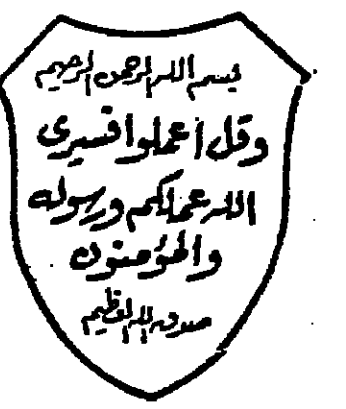 بسم الله الرحمن الرحيم
وقل أعملوا فسيرى
الله عملكم ورسوله
والمؤمنون
صدق الله العظيم